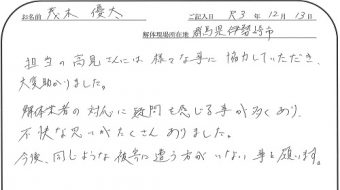 お名前 茂木 優太 ご記入日 R3年12月13日
解体現場所在地 群馬県伊勢崎市
担当の高見さんには様々な事に協力していただき、
大変助かりました。
解体業者の対応に疑問を感じる事が多くあり、
不快な思いがたくさんありました。
今後、同じような被害に遭う方がいない事を願います。